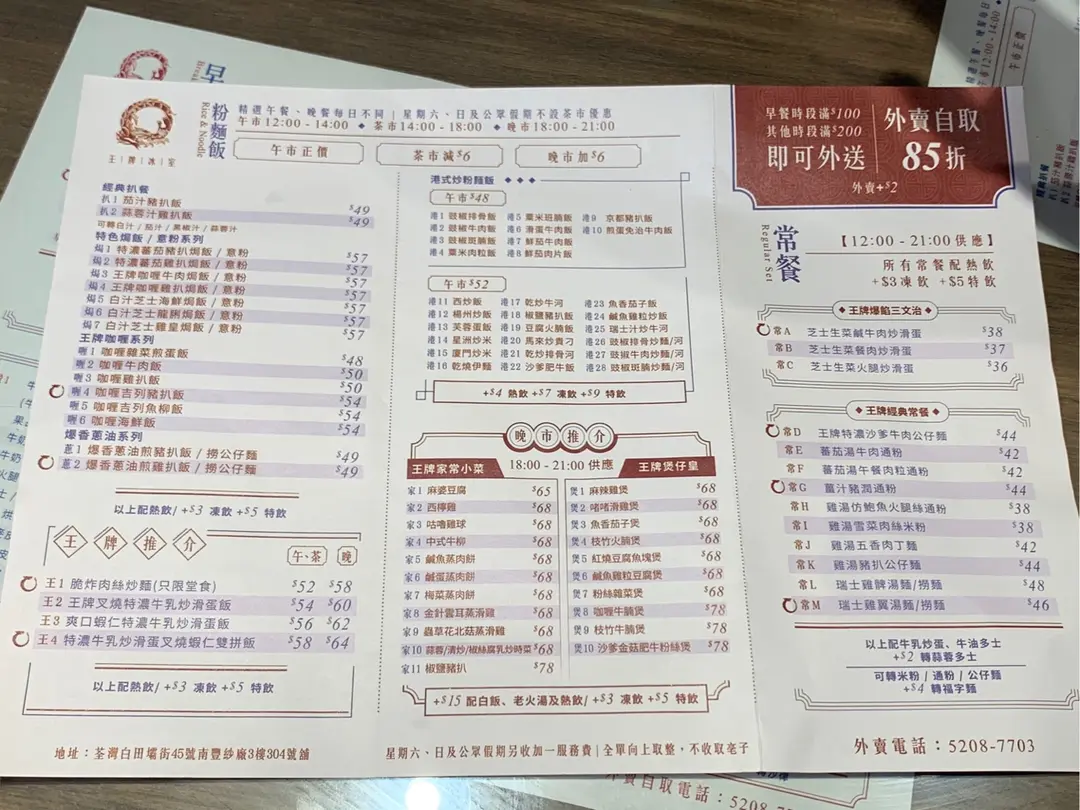 王牌冰室
粉麵飯
Rice & Noodle
精選午餐、晚餐每日不同 | 星期六、日及公眾假期不設茶市優惠
午市 12:00 - 14:00 ◆ 茶市 14:00 - 18:00 ◆ 晚市 18:00 - 21:00
午市正價
茶市減$6
晚市加$6
經典扒餐
扒1 茄汁豬扒飯 $49
扒2 蒜蓉汁雞扒飯 $49
可轉白汁 / 茄汁 / 黑椒汁 / 蒜蓉汁
特色焗飯 / 意粉系列
焗1 特濃蕃茄豬扒焗飯 / 意粉 $57
焗2 特濃蕃茄雞扒焗飯 / 意粉 $57
焗3 王牌咖喱牛肉焗飯 / 意粉 $57
焗4 王牌咖喱雞扒焗飯 / 意粉 $57
焗5 白汁芝士海鮮焗飯 / 意粉 $57
焗6 白汁芝士龍脷焗飯 / 意粉 $57
焗7 白汁芝士雞皇焗飯 / 意粉 $57
王牌咖喱系列
喱1 咖喱雜菜煎蛋飯 $48
喱2 咖喱牛肉飯 $50
喱3 咖喱雞扒飯 $50
喱4 咖喱吉列豬扒飯 $54
喱5 咖喱吉列魚柳飯 $54
喱6 咖喱海鮮飯 $54
爆香蔥油系列
蔥1 爆香蔥油煎豬扒飯 / 撈公仔麵 $49
蔥2 爆香蔥油煎雞扒飯 / 撈公仔麵 $49
以上配熱飲/ +$3 凍飲 +$5 特飲
王牌推介
午、茶 晚
王1 脆炸肉絲炒麵(只限堂食) $52 $58
王2 王牌叉燒特濃牛乳炒滑蛋飯 $54 $60
王3 爽口蝦仁特濃牛乳炒滑蛋飯 $56 $62
王4 特濃牛乳炒滑蛋叉燒蝦仁雙拼飯 $58 $64
以上配熱飲/ +$3 凍飲 +$5 特飲
港式炒粉麵飯
午市$48
港1 豉椒排骨飯 港5 粟米斑腩飯 港9 京都豬扒飯
港2 豉椒牛肉飯 港6 滑蛋牛肉飯 港10 煎蛋免治牛肉飯
港3 豉椒斑腩飯 港7 鮮茄牛肉飯
港4 粟米肉粒飯 港8 鮮茄肉片飯
午市$52
港11 西炒飯 港17 乾炒牛河 港23 魚香茄子飯
港12 楊州炒飯 港18 椒鹽豬扒飯 港24 鹹魚雞粒炒飯
港13 芙蓉蛋飯 港19 豆腐火腩飯 港25 瑞士汁炒牛河
港14 星洲炒米 港20 馬來炒貴刁 港26 豉椒排骨炒麵/河
港15 廈門炒米 港21 乾炒排骨河 港27 豉椒牛肉炒麵/河
港16 乾燒伊麵 港22 沙爹肥牛飯 港28 豉椒斑腩炒麵/河
+$4 熱飲 +$7 凍飲 +$9 特飲
晚市推介
王牌家常小菜 18:00 - 21:00 供應 王牌煲仔皇
家1 麻婆豆腐 $65
家2 西檸雞 $68
家3 咕嚕雞球 $68
家4 中式牛柳 $68
家5 鹹魚蒸肉餅 $68
家6 鹹蛋蒸肉餅 $68
家7 梅菜蒸肉餅 $68
家8 金針雲耳蒸滑雞 $68
家9 蟲草花北菇蒸滑雞 $68
家10 蒜蓉/清炒/椒絲腐乳炒時菜 $68
家11 椒鹽豬扒 $78
煲1 麻辣雞煲 $68
煲2 啫啫滑雞煲 $68
煲3 魚香茄子煲 $68
煲4 枝竹火腩煲 $68
煲5 紅燒豆腐魚塊煲 $68
煲6 鹹魚雞粒豆腐煲 $68
煲7 粉絲雜菜煲 $68
煲8 咖喱牛腩煲 $78
煲9 枝竹牛腩煲 $78
煲10 沙爹金菇肥牛粉絲煲 $78
+$15 配白飯、老火湯及熱飲/ +$3 凍飲 +$5 特飲
早餐時段滿$100
其他時段滿$200
即可外送
外賣自取
85折
外賣+$2
常餐
Regular Set
【12:00 - 21:00 供應】
所有常餐配熱飲
+$3凍飲 +$5特飲
◆ 王牌爆餡三文治 ◆
常A 芝士生菜鹹牛肉炒滑蛋 $38
常B 芝士生菜餐肉炒滑蛋 $37
常C 芝士生菜火腿炒滑蛋 $36
◆ 王牌經典常餐 ◆
常D 王牌特濃沙爹牛肉公仔麵 $44
常E 蕃茄湯牛肉通粉 $42
常F 蕃茄湯午餐肉粒通粉 $42
常G 薑汁豬潤通粉 $44
常H 雞湯仿鮑魚火腿絲通粉 $38
常I 雞湯雪菜肉絲米粉 $38
常J 雞湯五香肉丁麵 $42
常K 雞湯豬扒公仔麵 $44
常L 瑞士雞髀湯麵/撈麵 $48
常M 瑞士雞翼湯麵/撈麵 $46
以上配牛乳炒蛋、牛油多士
+$2 轉蒜蓉多士
可轉米粉 / 通粉 / 公仔麵
+$4 轉福字麵
地址：荃灣白田壩街45號南豐紗廠3樓304號舖
星期六、日及公眾假期另收加一服務費 | 全單向上取整，不收取毫子
外賣電話：5208-7703
外賣自取電話：5208-77